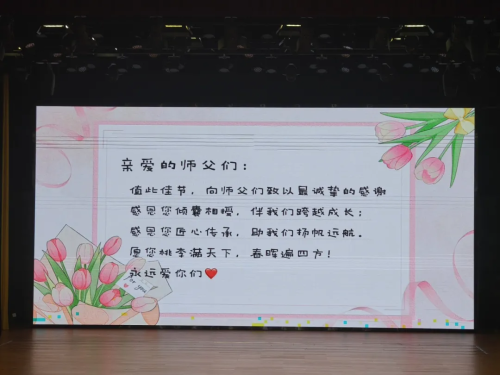 亲爱的师父们：
值此佳节，向师父们致以最诚挚的感谢
感恩您倾囊相授，伴我们跨越成长；
感恩您匠心传承，助我们扬帆远航。
愿您桃李满天下，春晖遍四方！
永远爱你们❤️